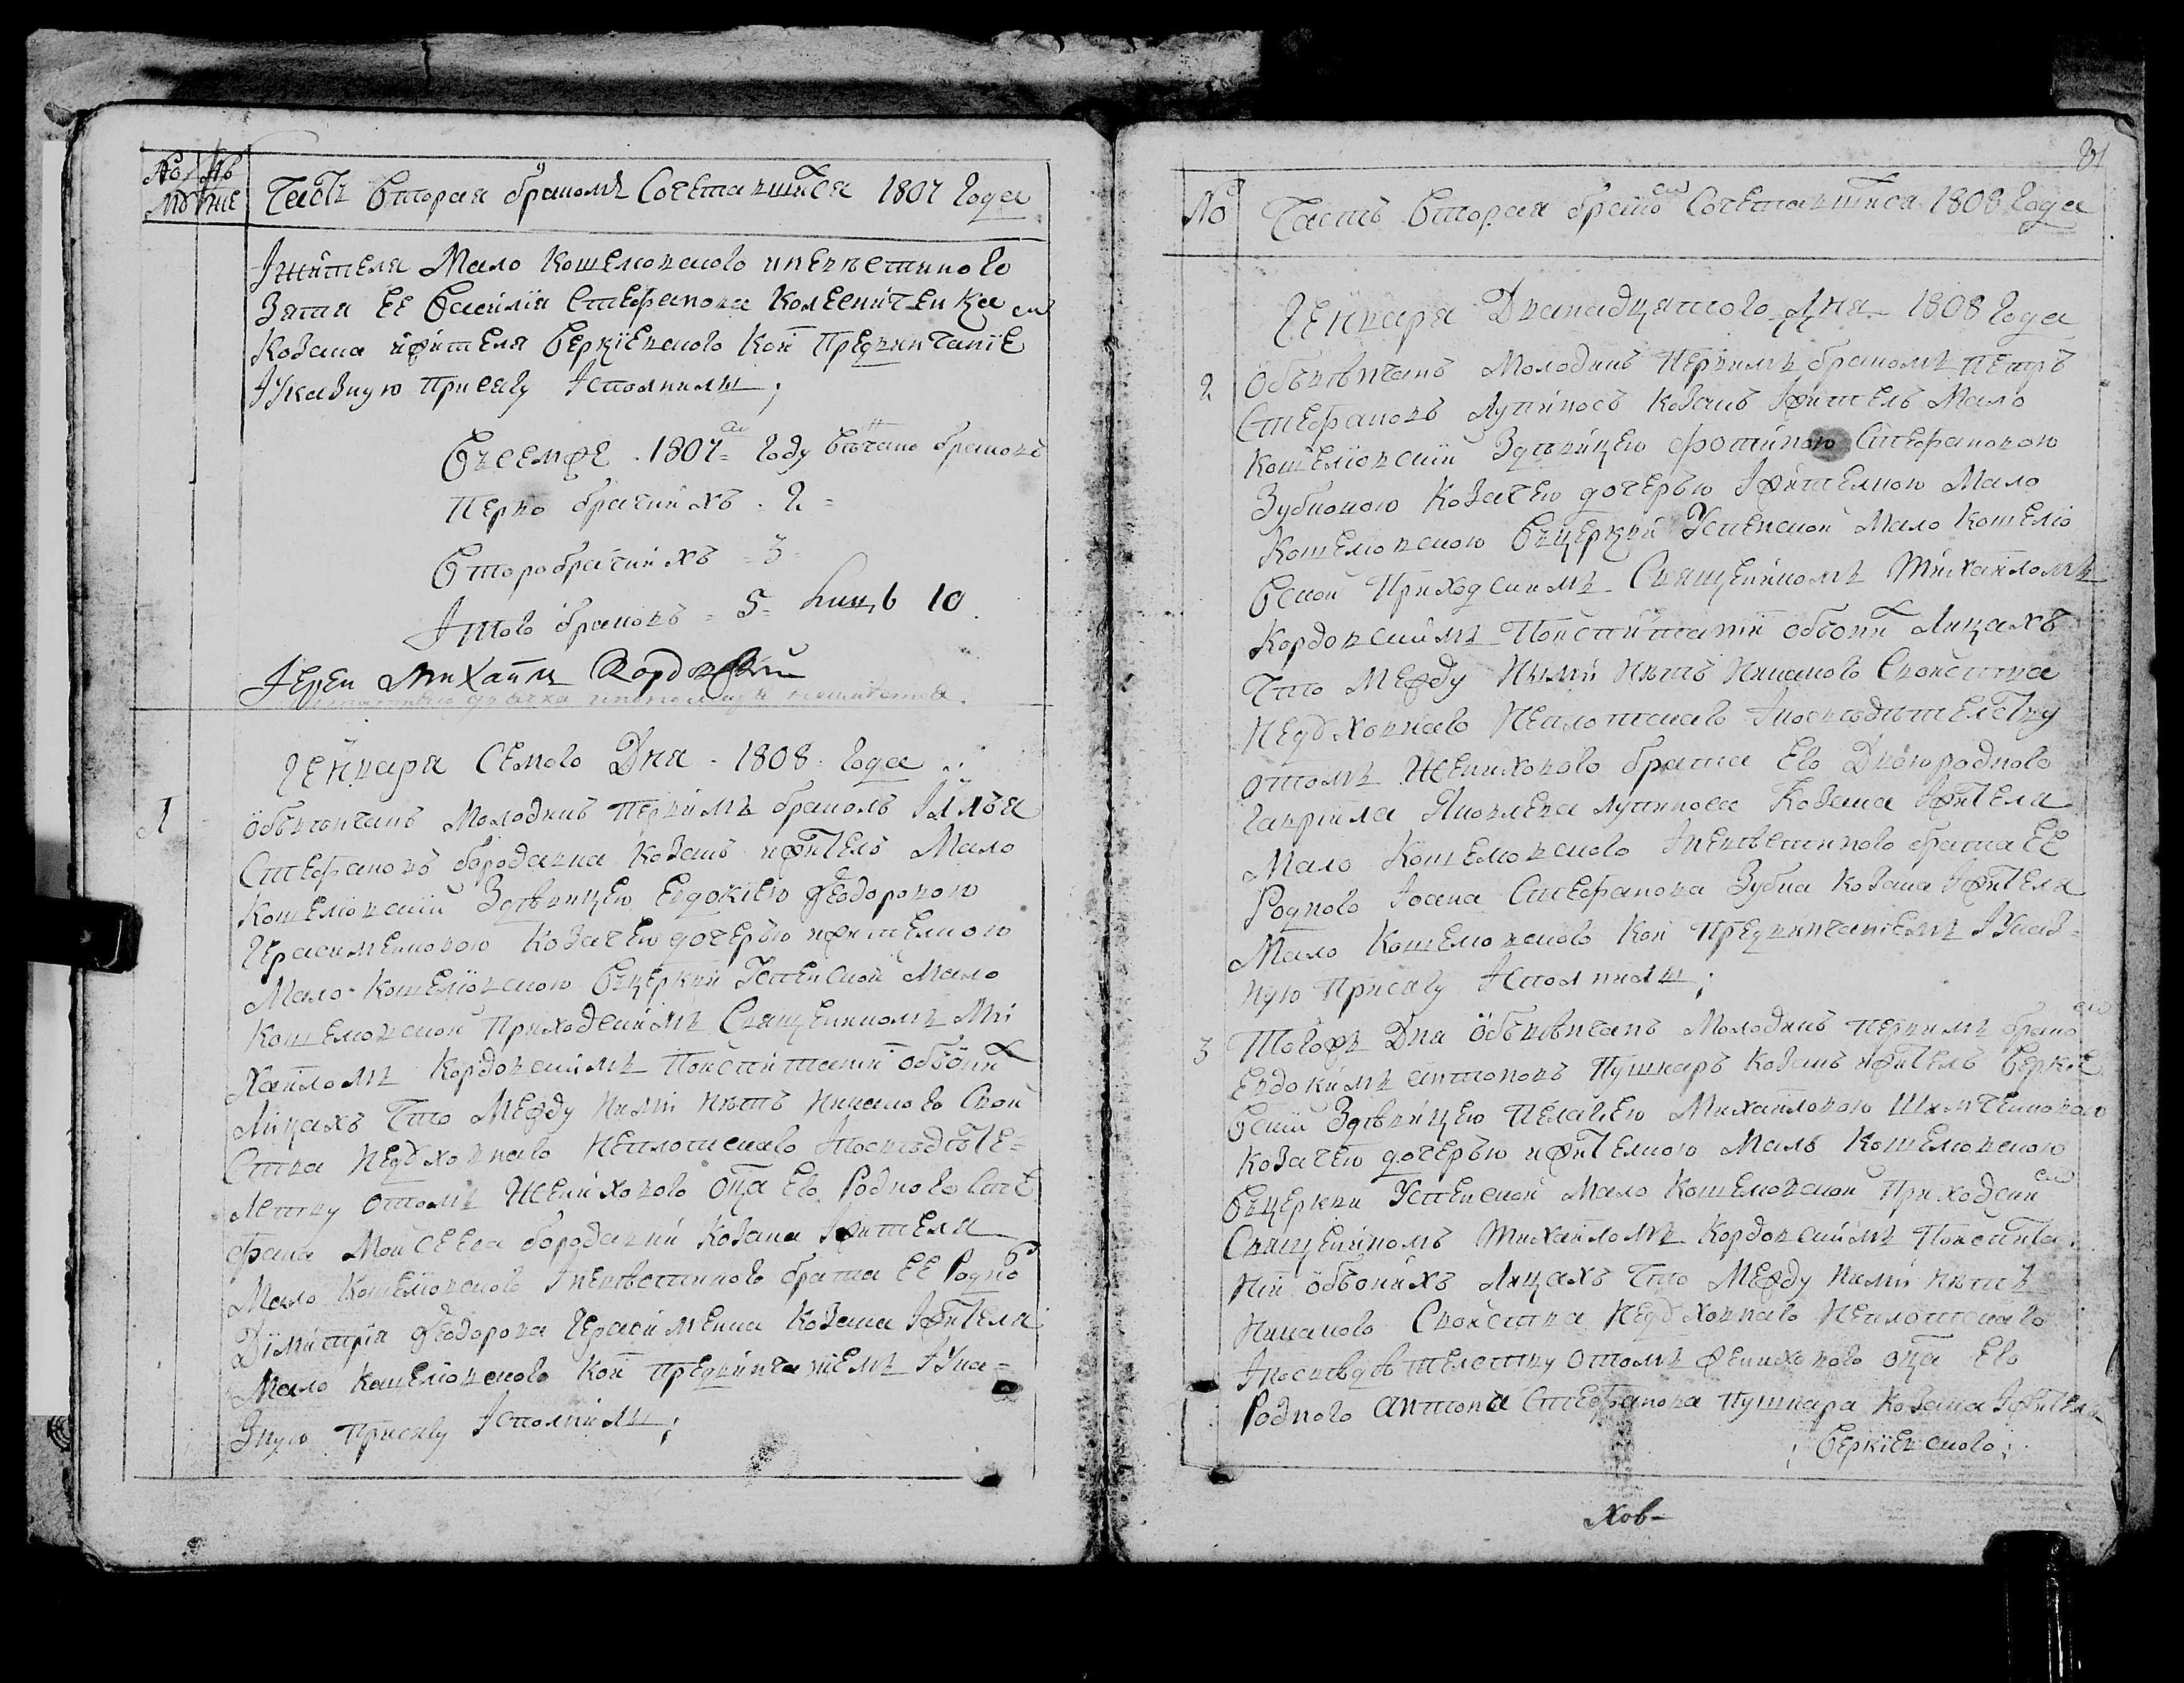 Часть вторая бракомъ Сочетавшихся 1807 Года
Iжителя Мало Кошелювского иневестиного
Зятя ЕЕ Василия Стефанова Колесниченка
Козака ижителя Веркiевского Кои Предвинчанiе
Iуказную Присягу Iсполнилы;
Всемже 1807 Году венчано браковъ
Первобрачнихъ 2
Второбрачнихъ 3
Iтого браковъ 5 лицъ 10
Iерей Михаилъ Кордовский
Генваря Семого Дня 1808 Года
1 Обвенчанъ Молодикъ Первимъ бракомъ Iллья
Стефановъ бородавка Козакъ ижитель Мало
Кошелювский Здевицею Евдокиею Феодоровою
Герасименковою Козачею дочерью ижителкою
Мало Кошелювскою Вцеркви Успенской Мало
Кошелювской Приходскимъ Священникомъ Ми
хаиломъ Кордовскимъ Поиспитании обоих
Лицахъ Что Между Ними нетъ Никакого Свой
Ства Недховнаго Неплотскаго Iпосведете=
лству отомъ Женихового отца Его Родного Сте
фана Мойсеева бородавки Козака Iжителя
Мало Кошелювского Iневестиного брата ЕЕ Родно
Димитрiя Феодорова Герасименка Козака Iжителя
Мало Кошелювского Кои Предвинчанiемъ Iука=
Зную Присягу Iсполнили;
№ Часть вторая брако Сочетавшихся 1808 Года
Генваря Дванадцятого Дня 1808 Года
2 Обвенчанъ Молодикъ Первимъ бракомъ Петръ
Стефановъ Лупиносъ Козакъ Iжитель Мало
Кошелювский Здевицею Фотиною Стефановою
Зубковою Козачею дочерью Iжителкою Мало
Кошелювскою Вцеркви Успенской Мало Кошелю
Вской Приходскимъ Священникомъ Михаиломъ
Кордовскимъ Поиспитании обоих Лицахъ
Что Между Ними Нетъ Никакого Свойства
Недховнаго Неплотскаго Iпосведетелству
отомъ Женихового брата Его Двоюродного
Гавриила Яковлева Лупиноса Козака Iжителя
Мало Кошелювского Iневестиного брата ЕЕ
Родного Iоана Стефанова Зубка Козака Iжителя
Мало Кошелювского Кои Предвинчанiемъ Iуказ=
ную Присягу Iсполнилы;
3 Тогожъ Дня Обвенчанъ Молодикъ Первимъ брако
Евдокимъ Антоновъ Пушкаръ Козакъ ижитель Веркiе
Вский Здевицею Пелагiею Михаиловою
Козачею дочерью ижителкою Мало Кошелювскою
Вцеркви Успенской Мало Кошелювской Приходски
Священикомъ Михаиломъ Кордовскимъ Поиспита
нiи обоихъ Лицахъ Что Между Ними нетъ
Никакого Свойства Недховнаго Неплотскаго
Iпосведетелству отомъ Женихового отца Его
Родного Антона Стефанова Пушкара Козака Iжителя
Веркiевского;